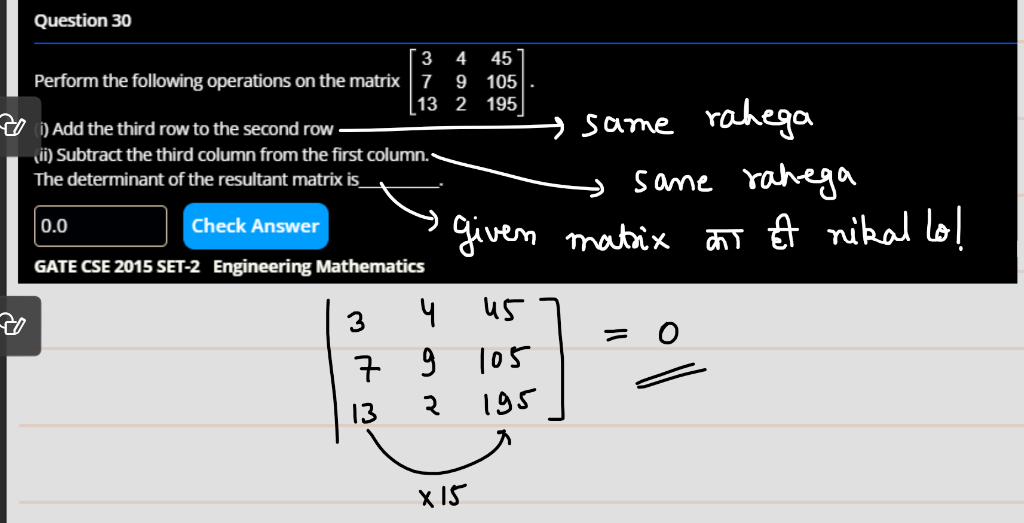 Question 30
Perform the following operations on the matrix [3 4 45
7 9 105
13 2 195].
(i) Add the third row to the second row → same rahega
(ii) Subtract the third column from the first column. → same rahega
The determinant of the resultant matrix is________. → given matrix का ही nikal lo!
0.0 Check Answer
GATE CSE 2015 SET-2 Engineering Mathematics
| 3 4 45 ] = 0
7 9 105
13 2 195
x15